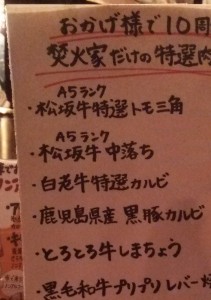 おかげ様で10周
焚火家だけの特選肉
A5ランク
・松坂牛特選トモ三角
A5ランク
・松坂牛中落ち
・白老牛特選カルビ
・鹿児島県産 黒豚カルビ
・とろとろ牛しまちょう
・黒毛和牛プリプリレバー